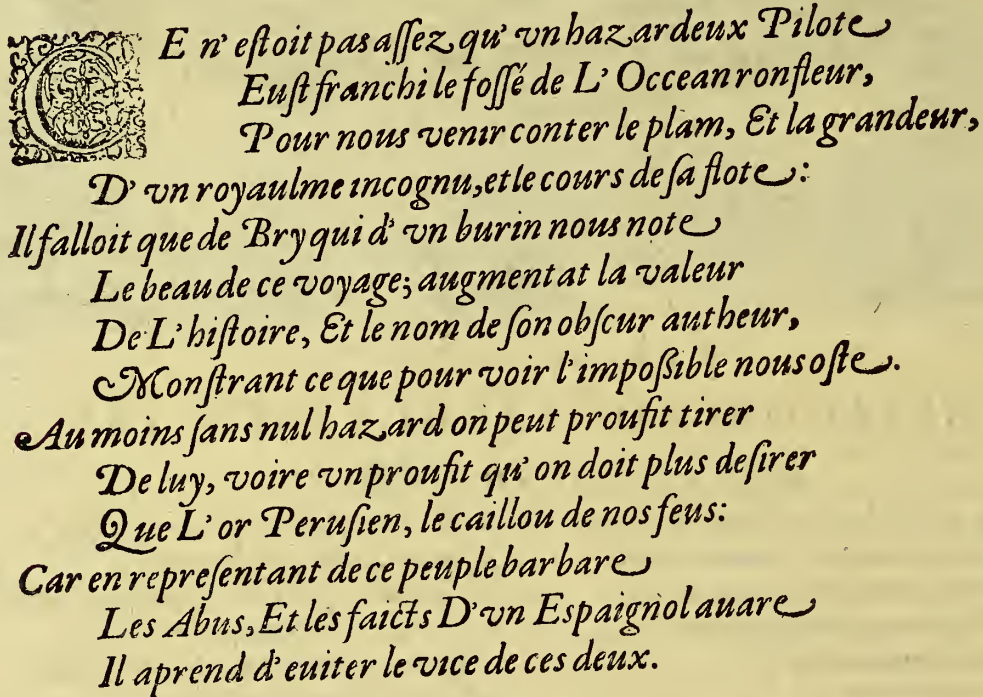 CE n' eſtoit pas aſſez qu' vn hazardeux Pilote
Euſt franchi le foſſé de L' Occean ronfleur,
Pour nous venir conter le plam, Et la grandeur,
D' vn royaulme incognu, et le cours de ſa flote:
Il falloit que de Bry qui d' vn burin nous note
Le beau de ce voyage; augmentat la valeur
De L' hiſtoire, Et le nom de ſon obſcur autheur,
Monſtrant ce que pour voir l' impoſsible nous oſte.
Au moins ſans nul hazard on peut proufit tirer
De luy, voire vn proufit qu' on doit plus deſirer
Que L' or Peruſien, le caillou de nos feus:
Car en repreſentant de ce peuple barbare
Les Abus, Et les faicts D' vn Espaignol auare
Il aprend d' euiter le vice de ces deux.